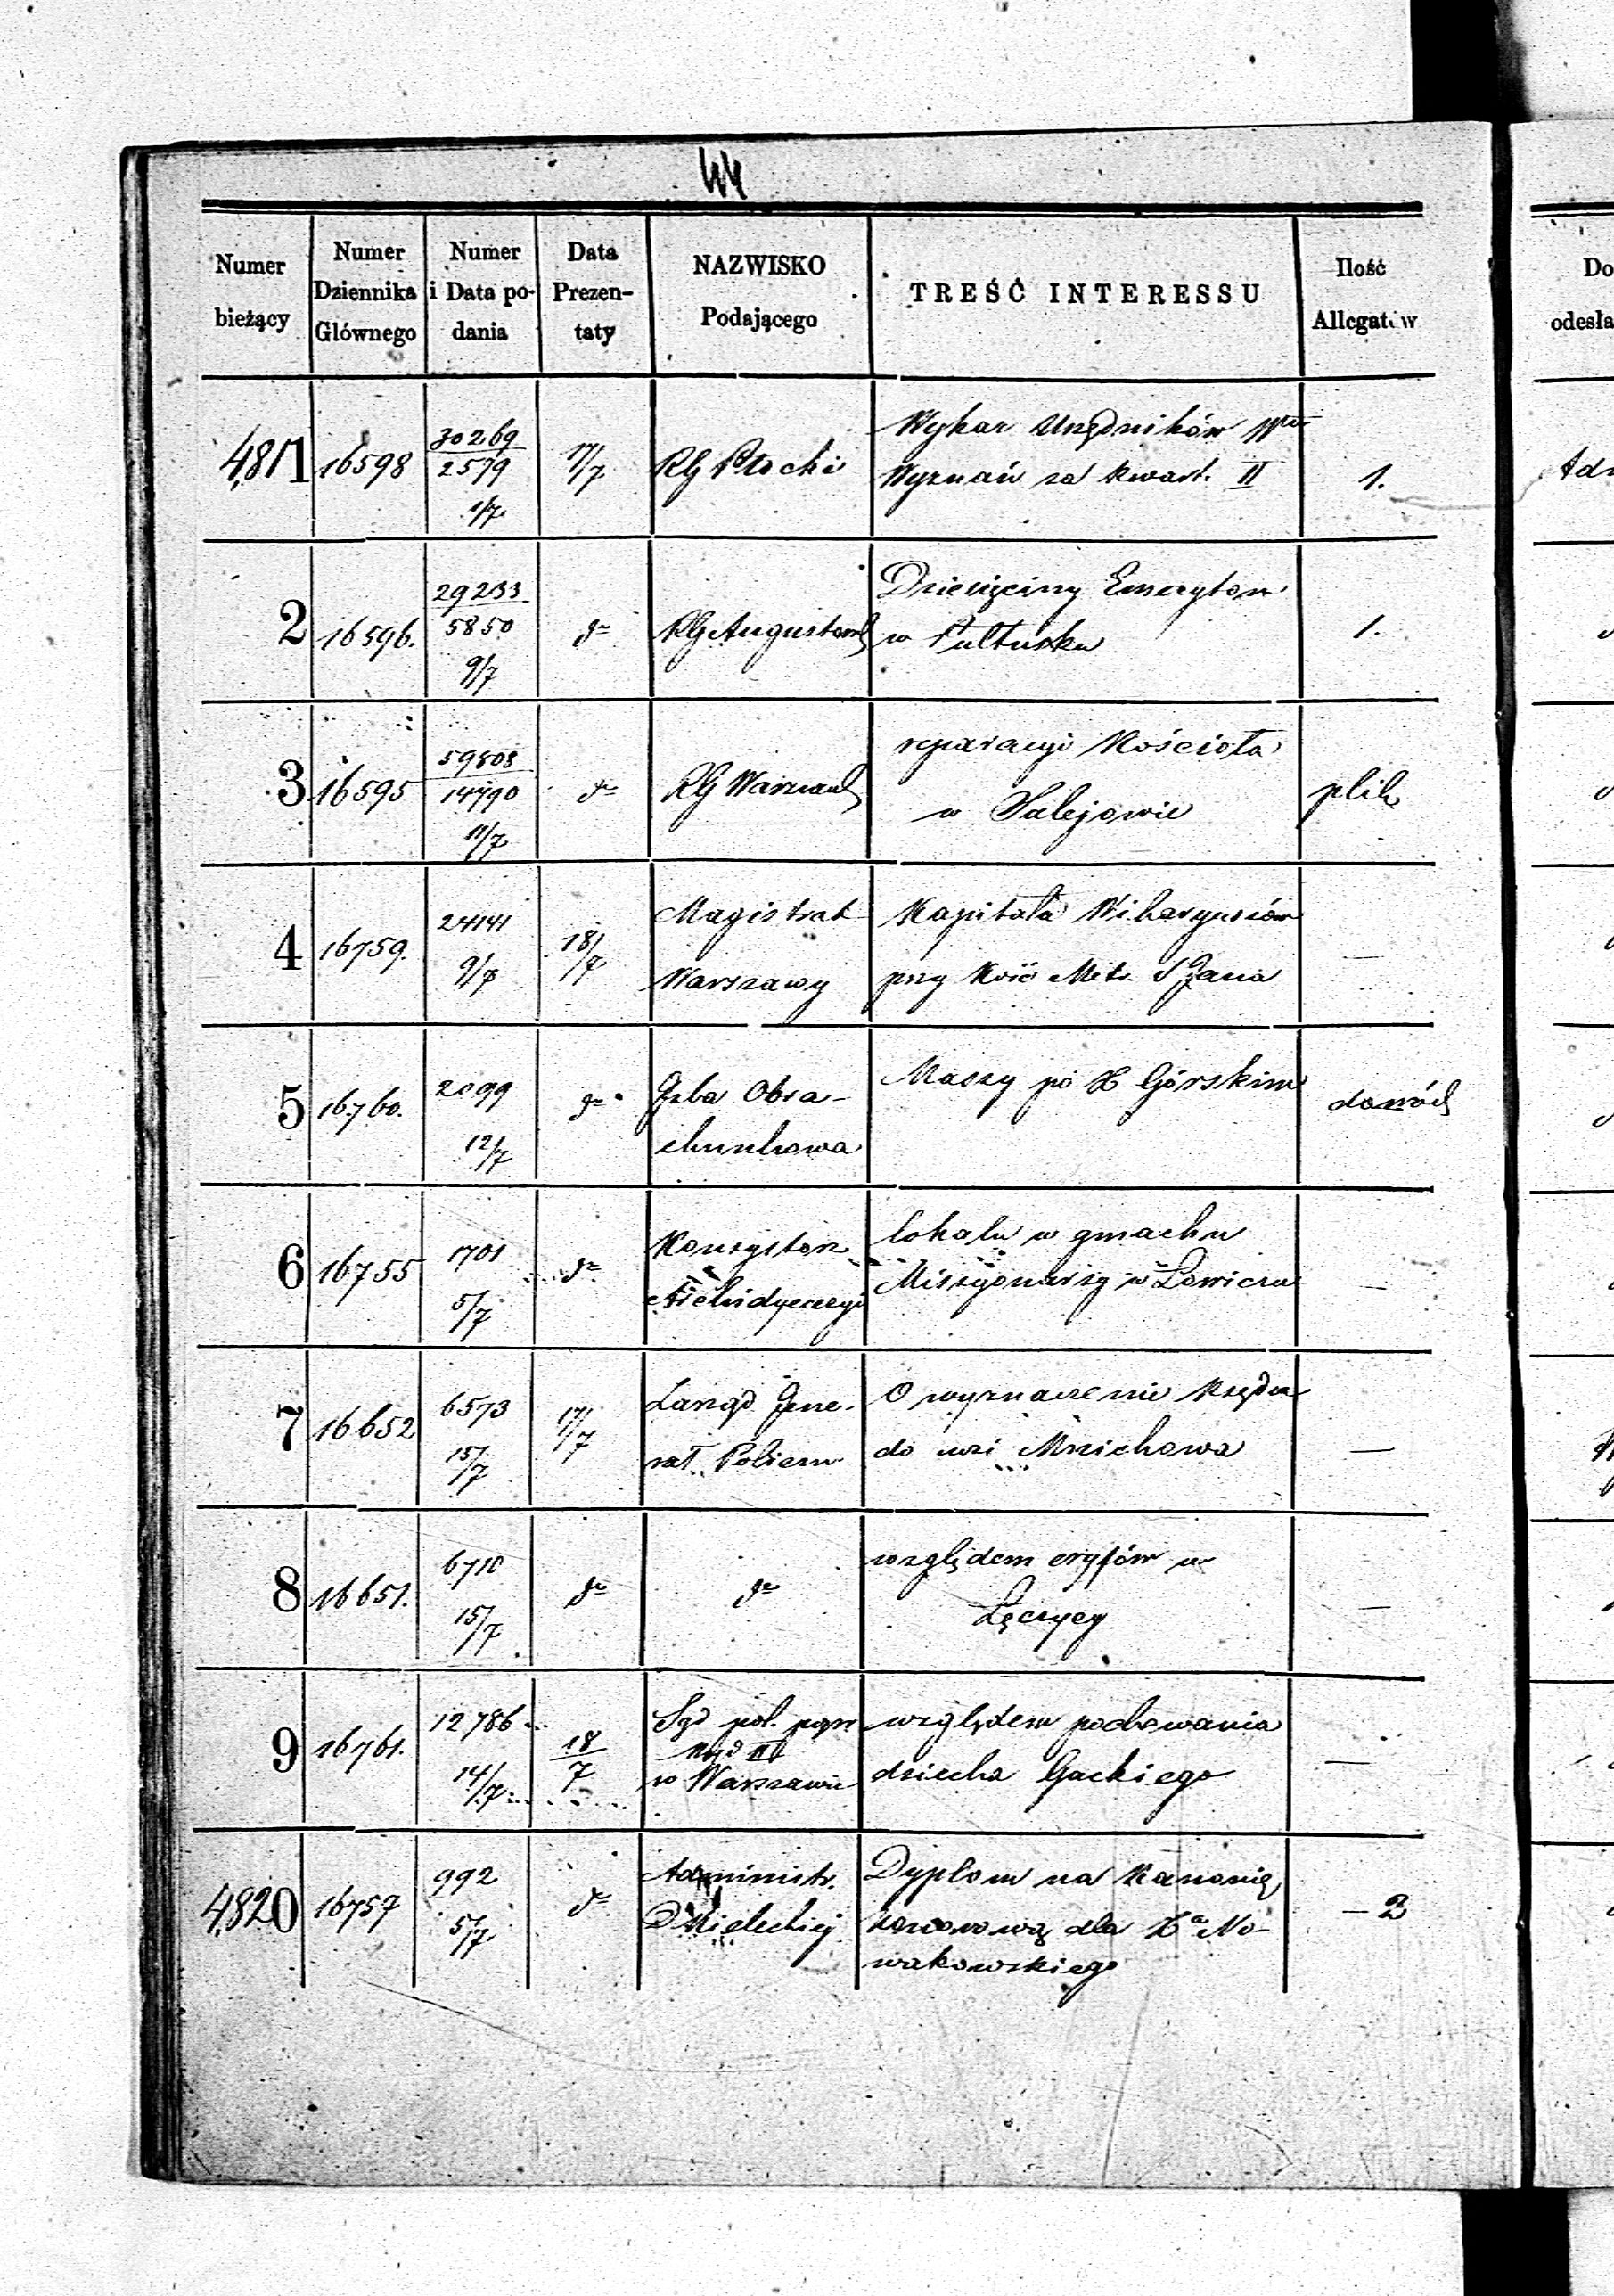 44
Numer bieżący | Numer Dziennika Głównego | Numer i Data podania | Data Prezentaty | NAZWISKO Podającego | TREŚĆ INTERESSU | Ilość Allegatów | Do odesła
4811 | 16598 | 30269 / 2579 1/7 | 17/7 | RG Płocki | Wykaz Urzędników Wdu Wyznań za kwart. II | 1.
2 | 16596. | 29233 / 5850 9/7 | do | RG Augustows | Dziesięciny Emerytom w Pułtusku | 1.
3 | 16595 | 59803 / 14790 11/7 | do | RG Warszaws | reparacyi Kościoła w Sulejowie | plik
4 | 16759. | 24141 9/7 | 18/7 | Magistrat Warszawy | Kapitała Wikaryuszów przy Kość Metr. S Jana | —
5 | 16760. | 2099 12/7 | do | Izba Obrachunkowa | Massy po X Górskim | dowód
6 | 16755 | 1701 5/7 | do | Konsystorz Archidyecezyi | lokalu w gmachu Missyonarzy w Łowiczu | —
7 | 16652 | 6573 15/7 | 17/7 | Zarząd Gene- rał Policm | O wyznaczenie Księdza do wsi Mnichowa | —
8 | 16651. | 6710 15/7 | do | do | względem oryfów w Łęczycy | —
9 | 16761. | 12786 14/7 | 18/7 | Sąd pol. popr Wyd III w Warszawie | względem pochowania dziecka Gackiego | —
4820 | 16757 | 992 5/7 | do | Administr. D Kieleckiej | Dyplom na Kanonię honorową dla Xa Nowakowskiego | — 2